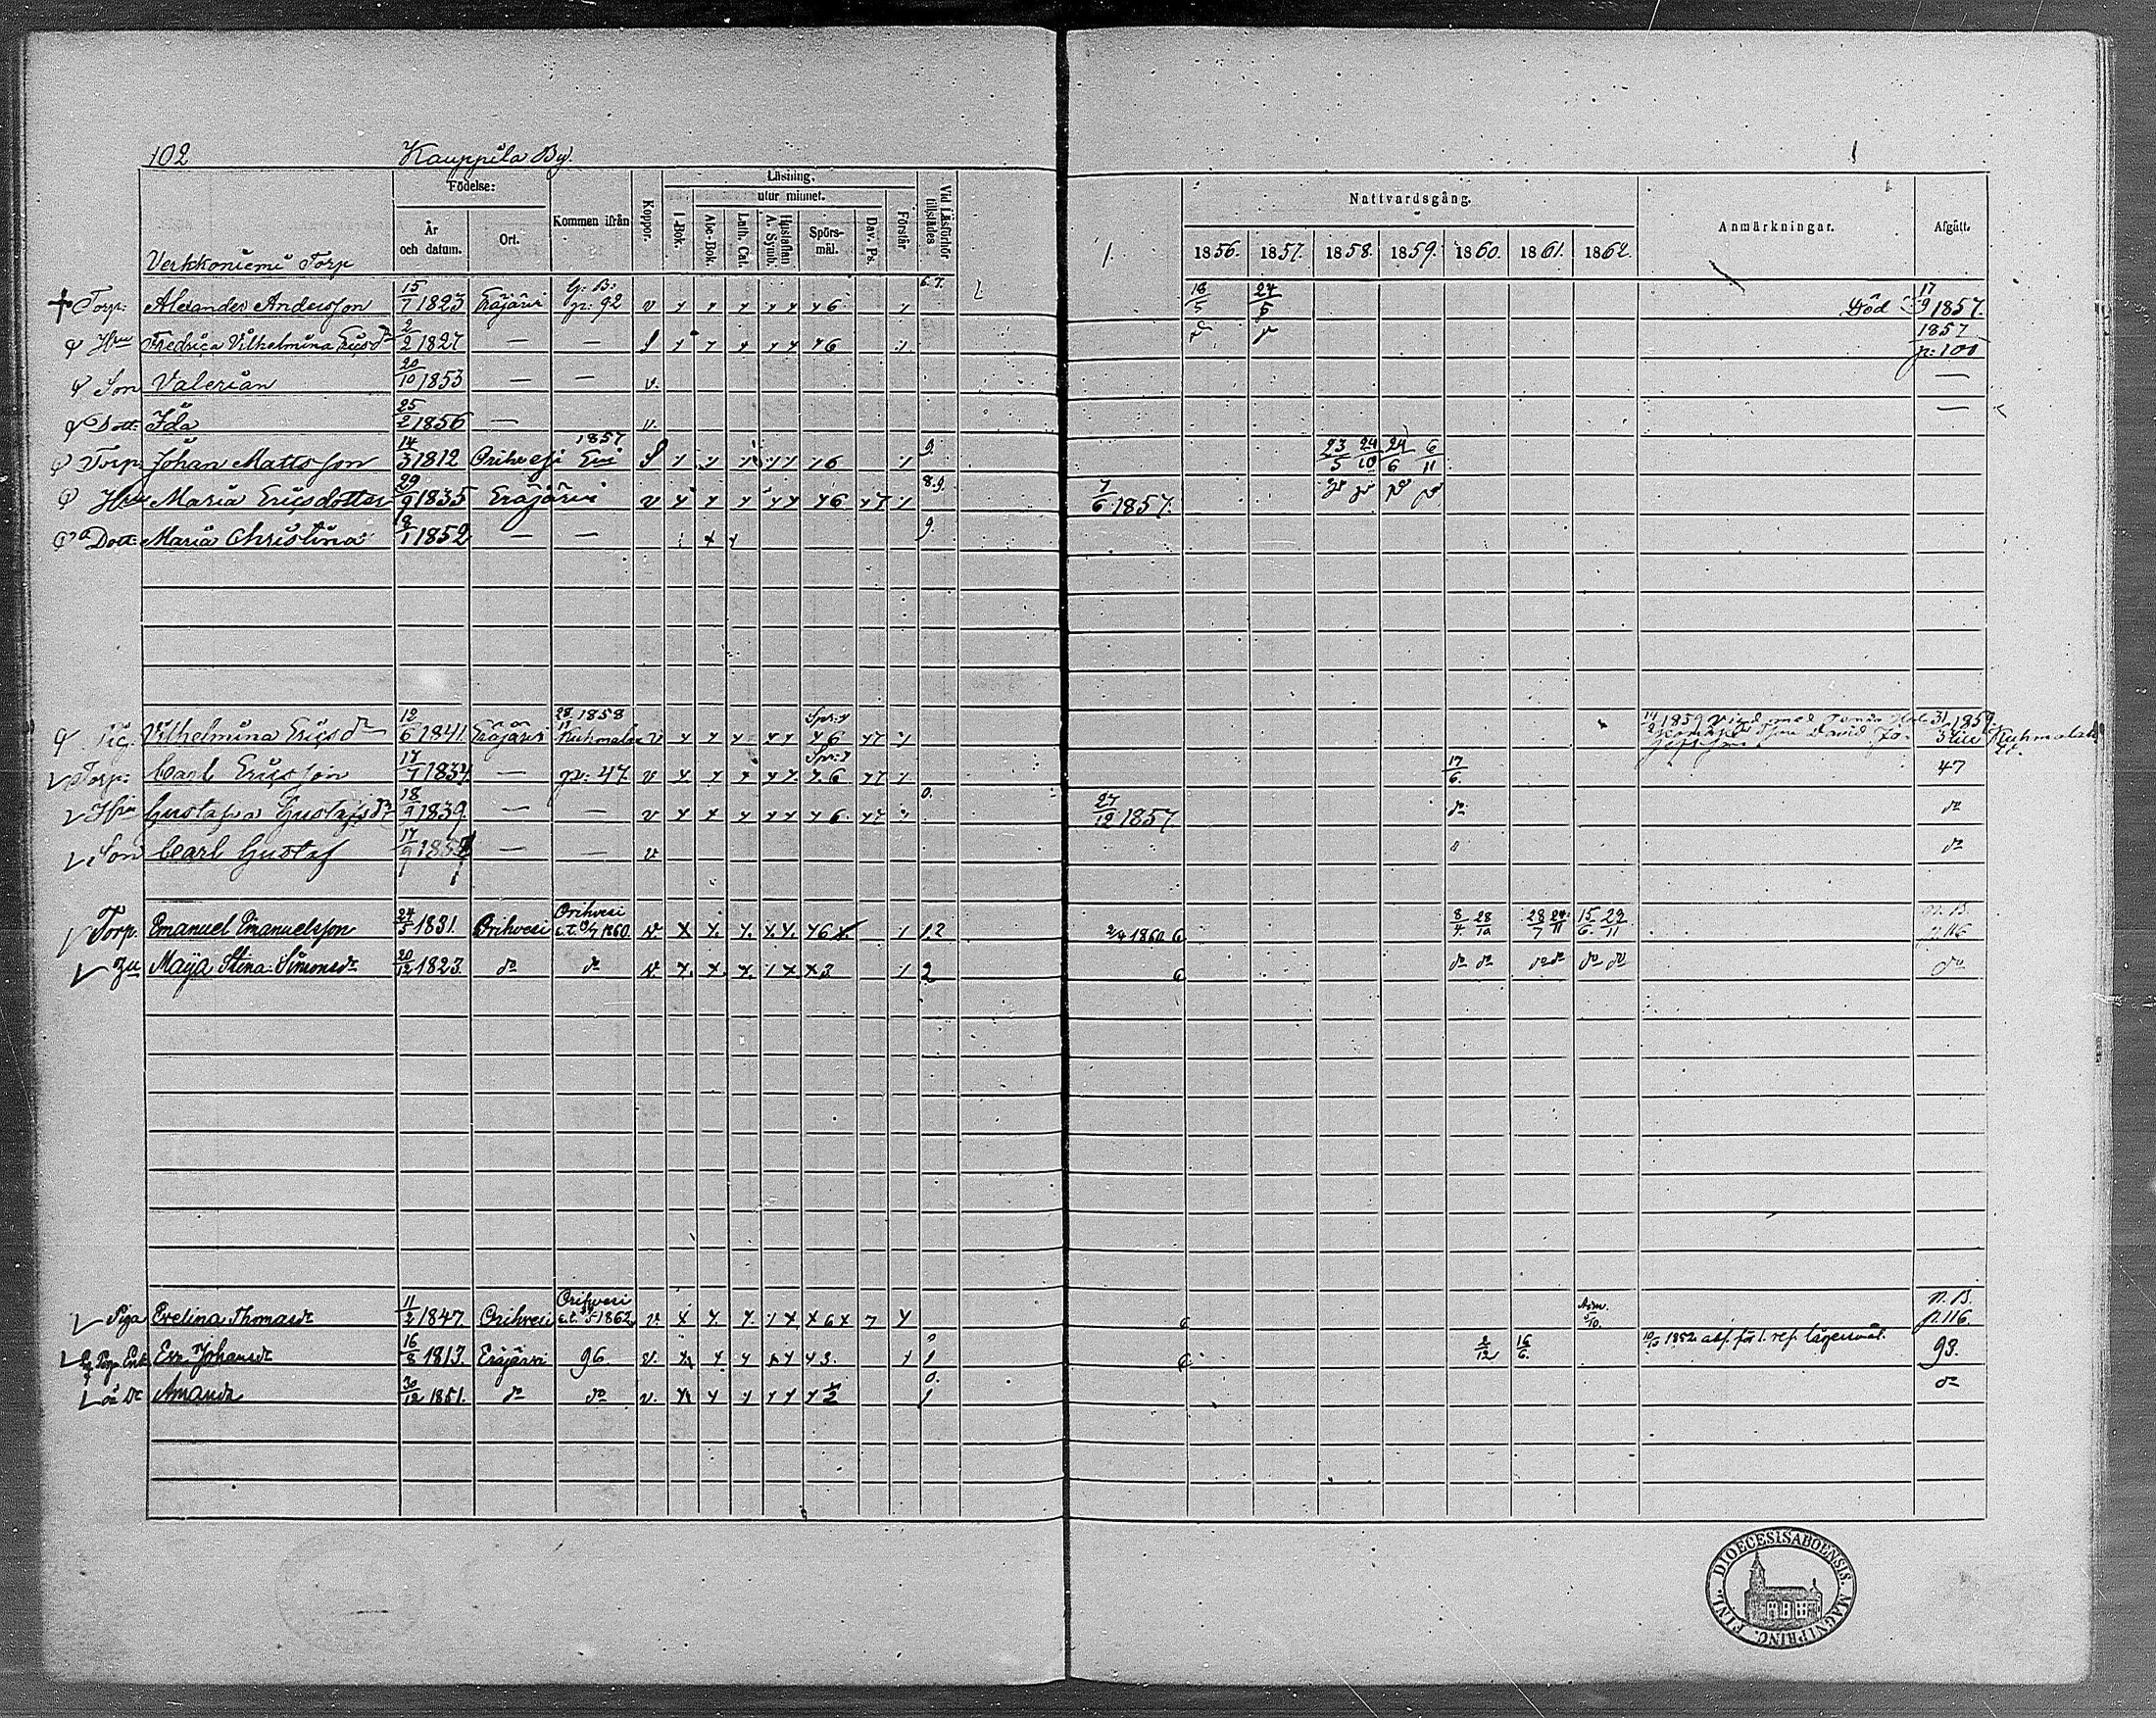 102 Kauppila By.
Verkkoniemi Torp
Födelse: År och datum. Ort. Kommen ifrån Koppor. Läsning, utur minnet. I-Bok. Abc-Bok. Luth. Cat. Hustaflan A. Symb. Spörsmål. Dav. Ps. Förstår Vid Läsförhör tillstädes
1. Nattvardsgång. Anmärkningar. Afgått.
1856. 1857. 1858. 1859. 1860. 1861. 1862.
Torp: Alexander Andersson 15/7 1823 Eräjärvi G: B: p: 92 v 6 6.7. 18/5 24/5 Död 17/9 1857.
Hru Fredrica Vilhelmina Ericsdr 2/2 1827 — — 6 1857 p: 100
Son Valerian 20/10 1853 — — v. —
Dott: Ida 25/2 1856 — v. —
Torp: Johan Mattsson 14/3 1812 Orihvesi 1857 6 9. 23/5 24/10 24/6 6/11
Hru Maria Ericsdotter 29/9 1835 Eräjärvi v 6 8.9. 7/6 1857.
Dott: Maria Christina 8/1 1852 — — 9.
Pig: Vilhelmina Ericsdr 12/6 1841 Eräjärvi 1858 Kuhmalax v 6 1859 1859. Kuhmalax
Torp: Carl Ericsson 17/7 1834 — p: 47. v 6 17/6. 47
Hru Gustafva Gustafsdr 18/9 1839 — — v 6. 0. 27/12 1857. do do
Son Carl Gustaf 17/9 185 — — v do
Torp. Emanuel Emanuelsson 24/5 1831. Orihvesi Orihvesi 1860. v. 6 1.2 2/4 1860 6 8/4. 28/10 28/7 24/11 15/6. 23/11 n. B. p. 116
Hu Maija Stina Simonsdr 20/12 1823. do do v. 3 1 2 do do do do do do do
Piga Evelina Thomasdr 11/2 1847 Orihvesi Orihvesi 1862, v. 6 5/10. n. B. p. 116.
Enk. Eva Johansdr 16/8 1813. Eräjärvi 96. v. 3. 2/12 16/6. 1852 abs. för 1. res. lägersmål. 93.
Dr Amanda 30/12 1851. do do v. 0. do
FINL. DIOECESIS ABOENSIS. MAGNI PRINC.